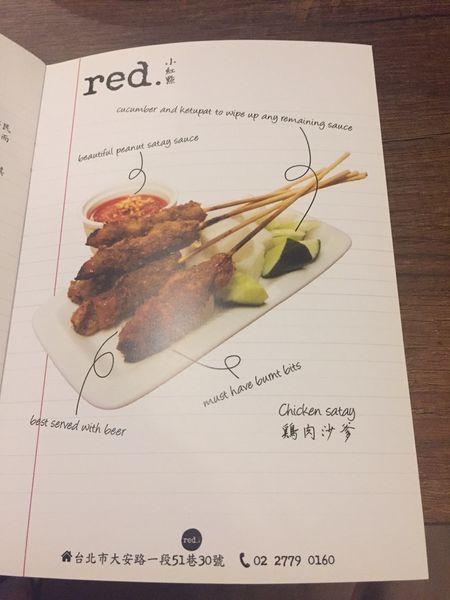 red.
小紅點
cucumber and ketupat to wipe up any remaining sauce
beautiful peanut satay sauce
must have burnt bits
best served with beer
Chicken satay
鷄肉沙爹
red.
台北市大安路一段51巷30號 02 2779 0160